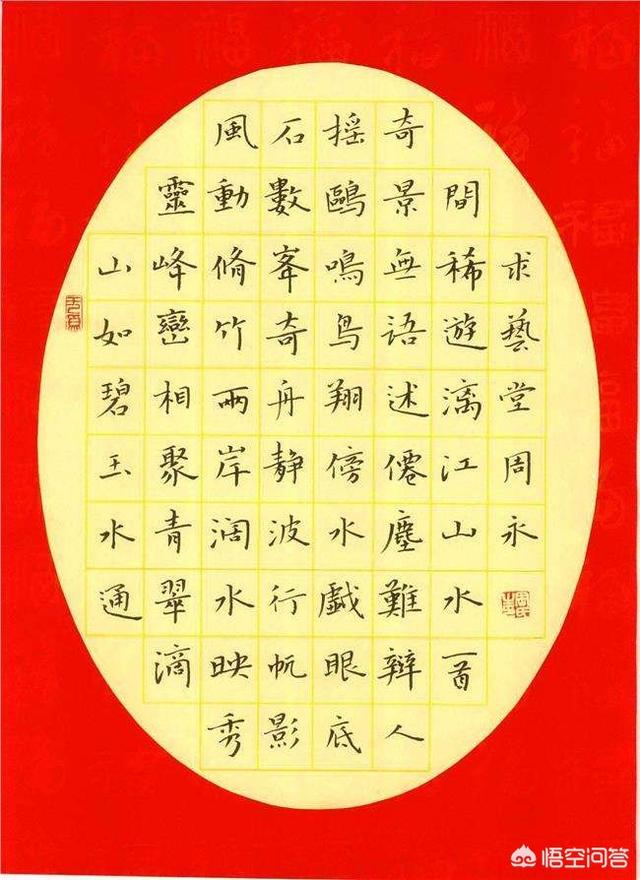 山如碧玉水通
靈峰巒相聚青翠滴
風動脩竹兩岸阔水映秀
石數峯奇舟静波行帆影
摇鷗鳴鳥翔傍水戲眼底
奇景無語述僊塵難辯人
間稀遊漓江山水一首
求藝堂周永
悟空问答